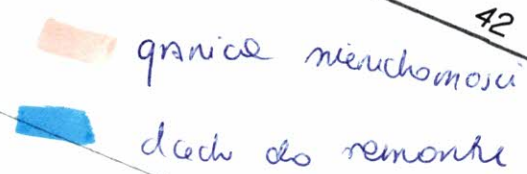 42
granica nieruchomości
dach do remontu